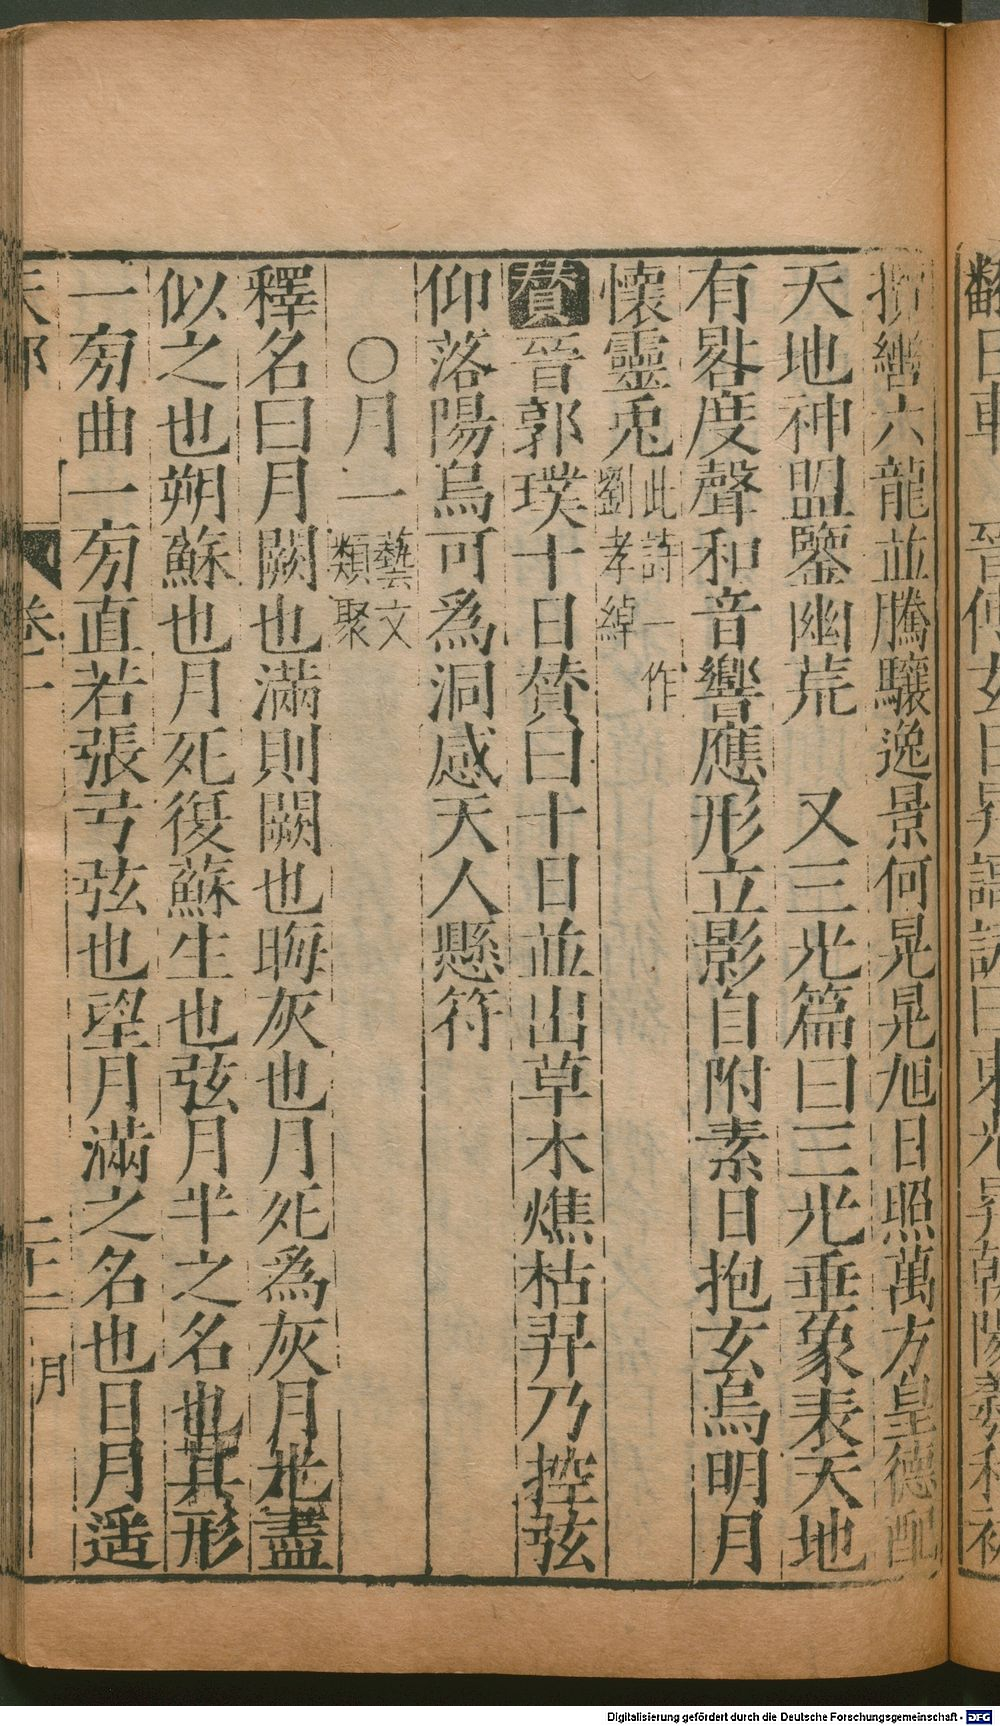 轡六龍並騰驤逸景何晃晃旭日照萬方皇德配
天地神盟鑒幽荒　又三光篇曰三光垂象表天地
有晷度聲和音響應形立影自附素日抱玄烏明月
懷靈兎此詩一作劉孝綽
贊晉郭璞十日贊曰十日並出草木燋枯羿乃控弦
仰落陽烏可爲洞感天人懸符
〇月一藝文類聚
釋名曰月闕也滿則闕也晦灰也月死爲灰月光盡
似之也朔蘇也月死復蘇生也弦月半之名也其形
一旁曲一旁直若張弓弦也望月滿之名也日月遥
卷一
二十二
月
Digitalisierung gefördert durch die Deutsche Forschungsgemeinschaft - DFG